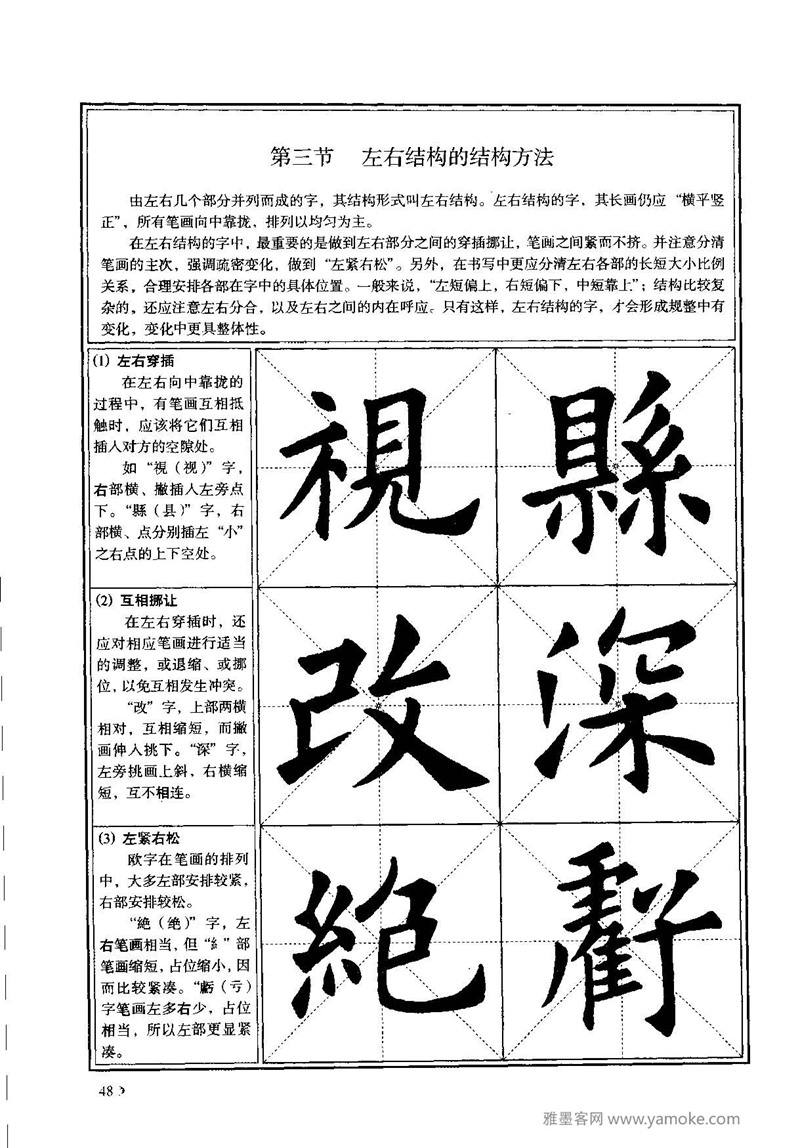 第三节 左右结构的结构方法
由左右几个部分并列而成的字，其结构形式叫左右结构。左右结构的字，其长画仍应“横平竖
正”，所有笔画向中靠拢，排列以均匀为主。
在左右结构的字中，最重要的是做到左右部分之间的穿插挪让，笔画之间紧而不挤。并注意分清
笔画的主次，强调疏密变化，做到“左紧右松”。另外，在书写中更应分清左右各部的长短大小比例
关系，合理安排各部在字中的具体位置。一般来说，“左短偏上，右短偏下，中短靠上”；结构比较复
杂的，还应注意左右分合，以及左右之间的内在呼应。只有这样，左右结构的字，才会形成规整中有
变化，变化中更具整体性。
(1) 左右穿插
在左右向中靠拢的
过程中，有笔画互相抵
触时，应该将它们互相
插入对方的空隙处。
如“視（视）”字，
右部横、撇插入左旁点
下。“縣（县）”字，右
部横、点分别插左“小”
之右点的上下空处。
視 縣
(2) 互相挪让
在左右穿插时，还
应对相应笔画进行适当
的调整，或退缩、或挪
位，以免互相发生冲突。
“改”字，上部两横
相对，互相缩短，而撇
画伸入挑下。“深”字，
左旁挑画上斜，右横缩
短，互不相连。
改 深
(3) 左紧右松
欧字在笔画的排列
中，大多左部安排较紧，
右部安排较松。
“絶（绝）”字，左
右笔画相当，但“糹”部
笔画缩短，占位缩小，因
而比较紧凑。“虧（亏）
字笔画左多右少，占位
相当，所以左部更显紧
凑。
絶 虧
48
雅墨客网 www.yamoke.com